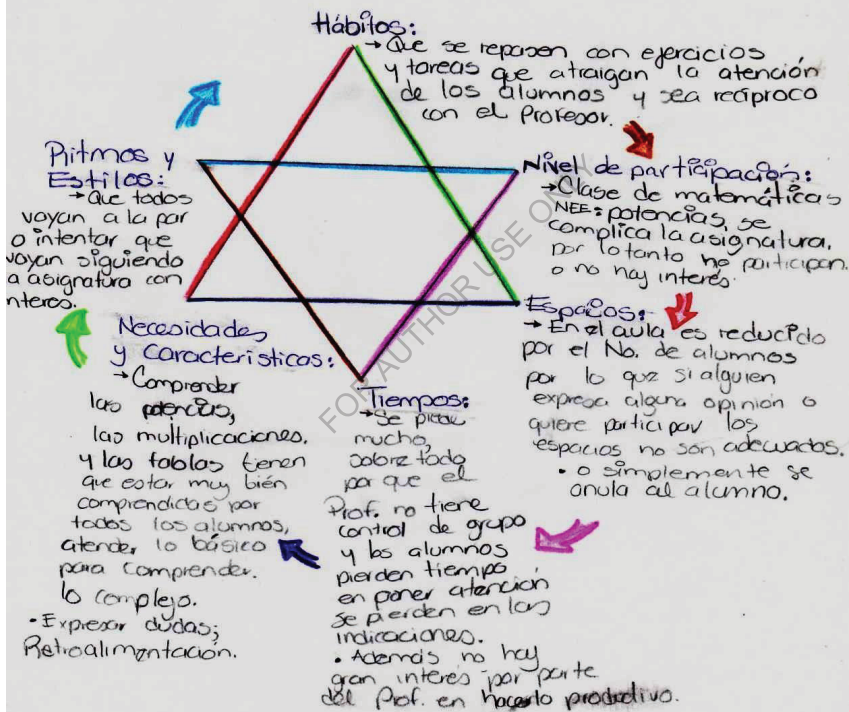 Hábitos:
→ Que se repasen con ejercicios
y tareas que atraigan la atención
de los alumnos y sea recíproco
con el Profesor.
Nivel de participación:
→ Clase de matemáticas
NEE: potencias, se
complica la asignatura,
por lo tanto no participan
o no hay interés.
Espacios:
→ En el aula es reducido
por el No. de alumnos
por lo que si alguien
expresa alguna opinión o
quiere participar los
espacios no son adecuados.
• o simplemente se
anula al alumno.
Tiempos:
→ Se
mucho,
sobre todo
por que el
Prof. no tiene
control de grupo
y los alumnos
pierden tiempo
en poner atención
se pierden en las
indicaciones.
• Además no hay
gran interés por parte
del Prof. en hacerlo productivo.
Necesidades
y características:
→ Comprender
las potencias,
las multiplicaciones.
y las tablas tienen
que estar muy bién
comprendidas por
todos los alumnos,
atender lo básico
para comprender.
lo complejo.
• Expresar dudas;
Retroalimentación.
Ritmos y
Estilos:
→ Que todos
vayan a la par
o intentar que
vayan siguiendo
a asignatura con
nteres.
FOR AUTHOR USE ONLY